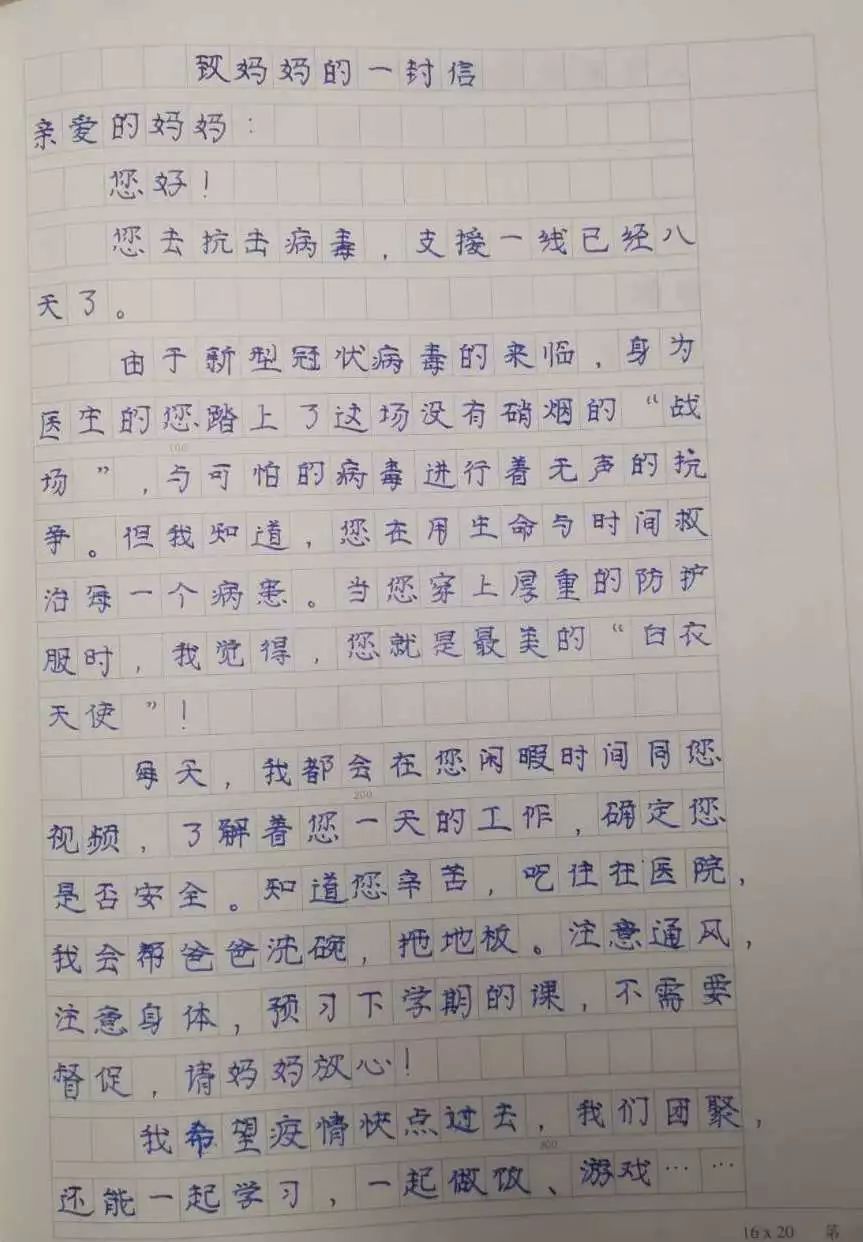 致妈妈的一封信
亲爱的妈妈：
您好！
您去抗击病毒，支接一线已经八
天了。
由于新型冠状病毒的来临，身为
医生的您踏上了这场没有硝烟的“战
100
场”，与可怕的病毒进行着无声的抗
争。但我知道，您在用生命与时间救
治每一个病患。当您穿上厚重的防护
服时，我觉得，您就是最美的“白衣
天使”！
每天，我都会在您闲暇时间同您
200
视频，了解着您一天的工作，确定您
是否安全。知道您辛苦，吃住在医院，
我会帮爸爸洗碗，拖地板。注意通风，
注意身体，预习下学期的课，不需要
督促，请妈妈放心！
我希望疫情快点过去，我们团聚，
300
还能一起学习，一起做饭、游戏……
16x20 第